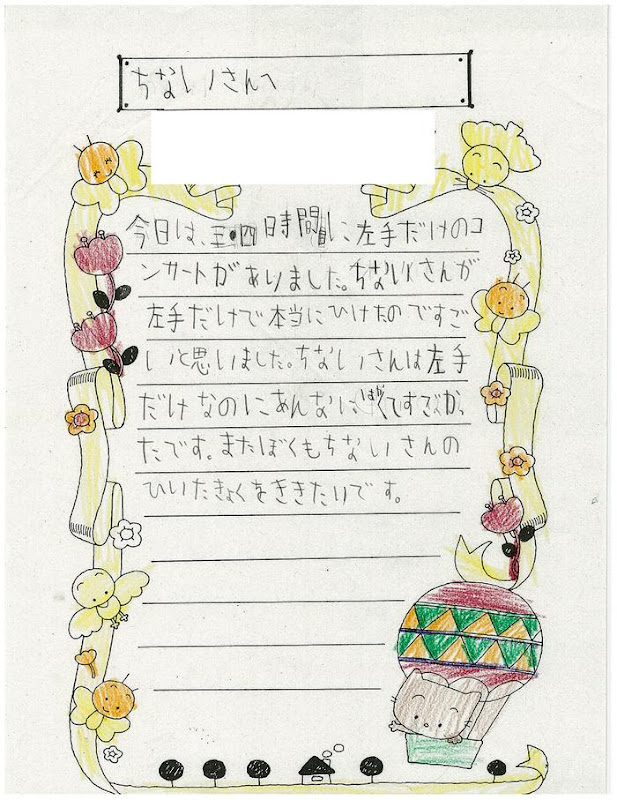 ちないさんへ
今日は、三・四時間目に左手だけのコ
ンサートがありました。ちないさんが
左手だけで本当にひけたのですご
いと思いました。ちないさんは左手
だけなのにあんなに すごかっ
たです。またぼくもちないさんの
ひいたきょくをききたいです。